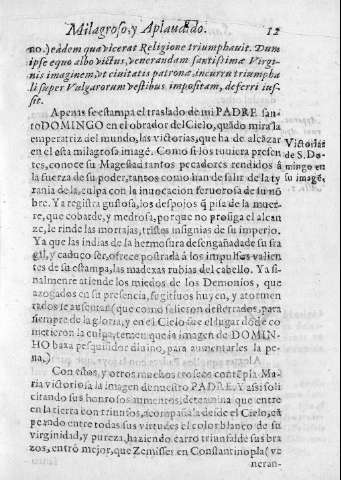 Milagroso, y Aplaudido. 12
no.) eadem qua vicerat Religione triumphavit. Dum
ipse equo albo vectus, venerandam santissimæ Virgi-
nis imaginem, vt ciuitatis patronæ, incurru triumpha
li super Vulgarorum vestibus impositam, deferri ius-
sit.
Apenas se estampa el traslado de mi PADRE san-
to DOMINGO en el obrador del Cielo, quãdo mira la
emperatriz del mundo, las victorias, que ha de alcãzar
en el esta milagrosa imagẽ. Como si los tuuiera presen
tes, conoce su Magestad tantos pecadores rendidos à
la fuerza de su poder, tantos como han de salir de la ty
rania de la culpa con la inuocacion feruorosa de su nõ
bre. Ya registra gustosa, los despojos q̃ pisa de la muer-
te, que cobarde, y medrosa, porque no prosiga el alcan
ze, le rinde las mortajas, tristes insignias de su imperio.
Ya que las indias de la hermosura desengañada de su fra
gil, y caduco ser, ofrece postrada à los impulsos valien
tes de su estampa, las madexas rubias del cabello. Ya fi-
nalmente atiende los miedos de los Demonios, que
azogados en su presencia, fugitiuos huyen, y atormen
tados se ausentan (que como salieron desterrados, para
siempre de la gloria, y en el Cielo fue el lugar dõde co
metieron la culpa, temen que la imagen de DOMIN-
HO baxa pesquisidor diuino, para aumentarles la pe
na.)
Con estos, y otros muchos trofeos contẽpla Ma-
ria victoriosa la imagen de nuestro PADRE. Y assi soli
citando sus honrosos aumentos, determina que entre
en la tierra con triunfos, acompañala desde el Cielo, cã
peando entre todas sus virtudes el color blanco de su
virginidad, y pureza, haziendo carro triunfal de sus bra
zos, entrò mejor, que Zemisses en Constantinopla (ve
neran-
Victorias
de S. Do-
mingo en
su imagẽ.